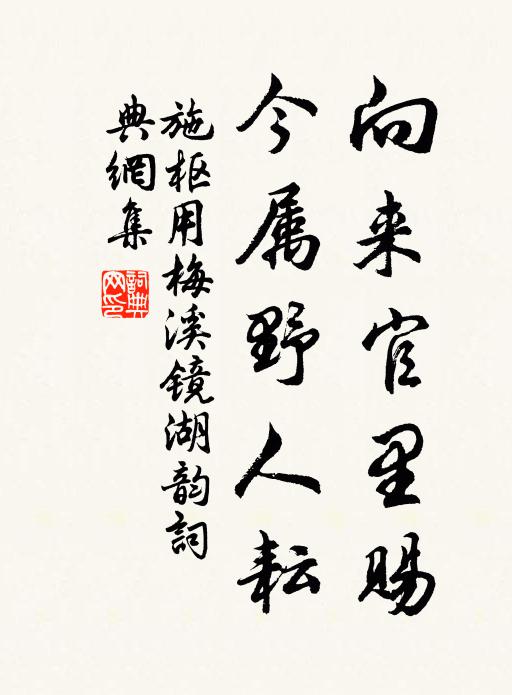 向来官里赐
今属野人耘
施枢用梅溪镜湖韵詞
典網集
詞典网印